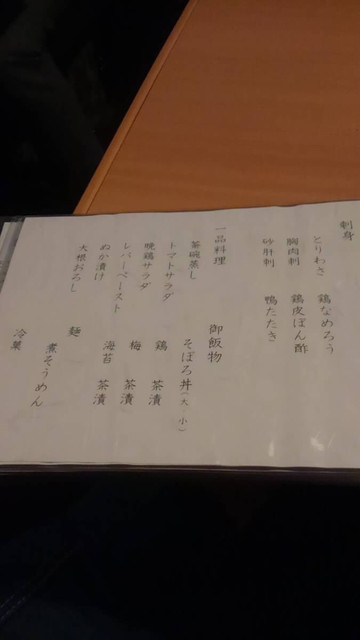 刺身
とりわさ 鶏なめろう
胸肉刺 鶏皮ぽん酢
砂肝刺 鴨たたき
一品料理
茶碗蒸し
トマトサラダ
晩鶏サラダ
レバーペースト
ぬか漬け
大根おろし
御飯物
そぼろ丼(大 小)
鶏 茶漬
梅 茶漬
海苔 茶漬
麺
煮そうめん
冷菓